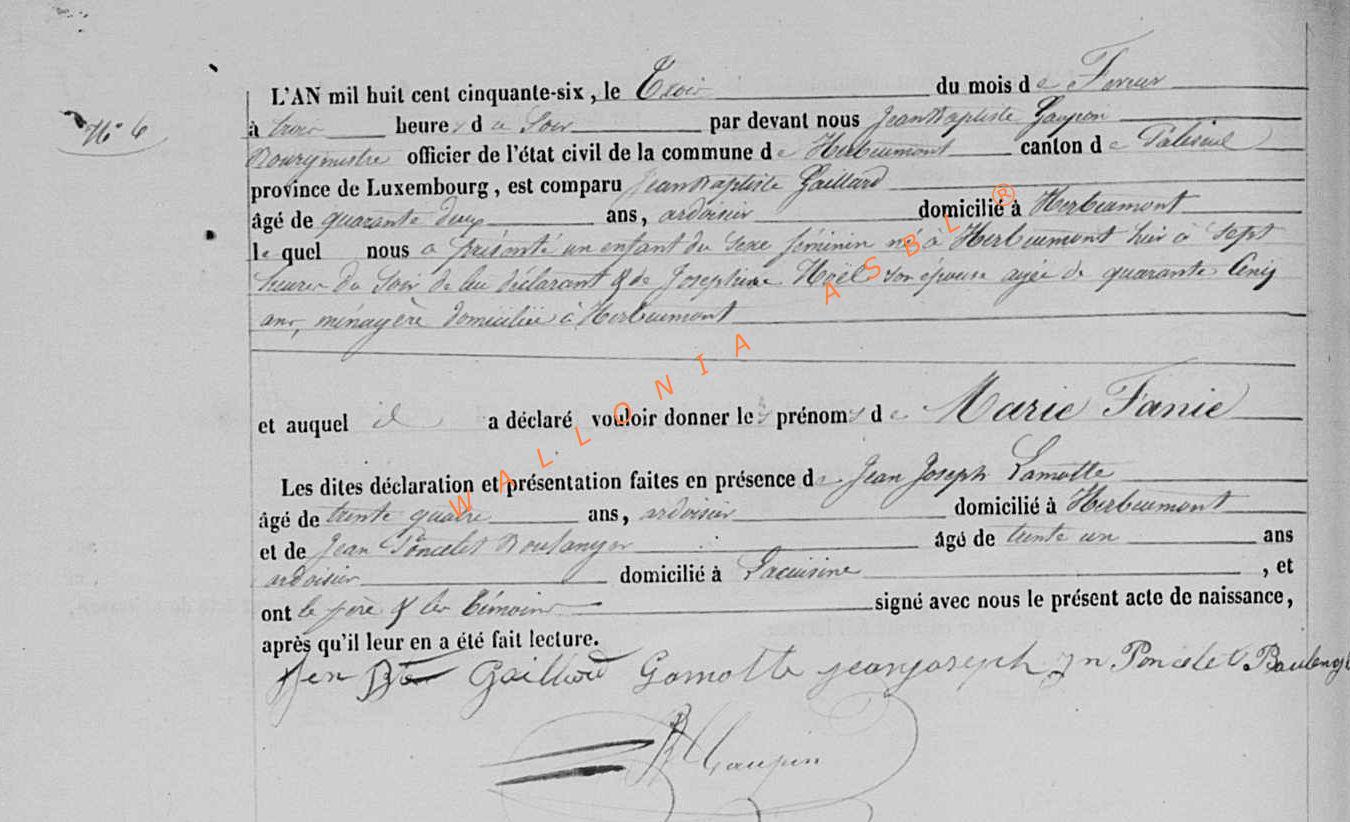 N° 6
L'AN mil huit cent cinquante-six, le Trois du mois de Fevrier
à trois heures du Soir par devant nous Jean Baptiste Gaupin
Bourgmestre officier de l'état civil de la commune de Herbeumont canton de Paliseul
province de Luxembourg, est comparu Jean Baptiste Gaillard
âgé de quarante deux ans, ardoisier domicilié à Herbeumont
le quel nous a présenté un enfant du sexe féminin né à Herbeumont hier à Sept
heures du Soir de lui déclarant & de Josephine Noël son épouse agée de quarante Cinq
ans, ménagère domiciliée à Herbeumont
et auquel il a déclaré vouloir donner les prénoms de Marie Fanie
Les dites déclaration et présentation faites en présence de Jean Joseph Lamotte
âgé de trente quatre ans, ardoisier domicilié à Herbeumont
et de Jean Poncelet Boulanger âgé de trente un ans
ardoisier domicilié à Lacuisine, et
ont le père & les témoins signé avec nous le présent acte de naissance,
après qu'il leur en a été fait lecture.
Gaillard Lamotte jeanjoseph Jn Poncelet Boulang
Gaupin
WALLONIA ASBL ®